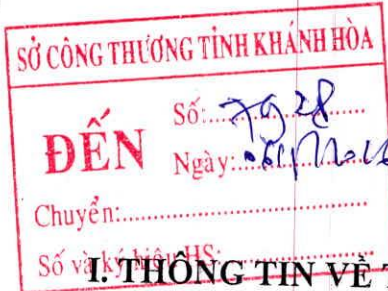 SỞ CÔNG THƯƠNG TỈNH KHÁNH HÒA
ĐẾN
Số:
Ngày:
Chuyển:
Số và ký hiệu HS:
I. THÔNG TIN VỀ